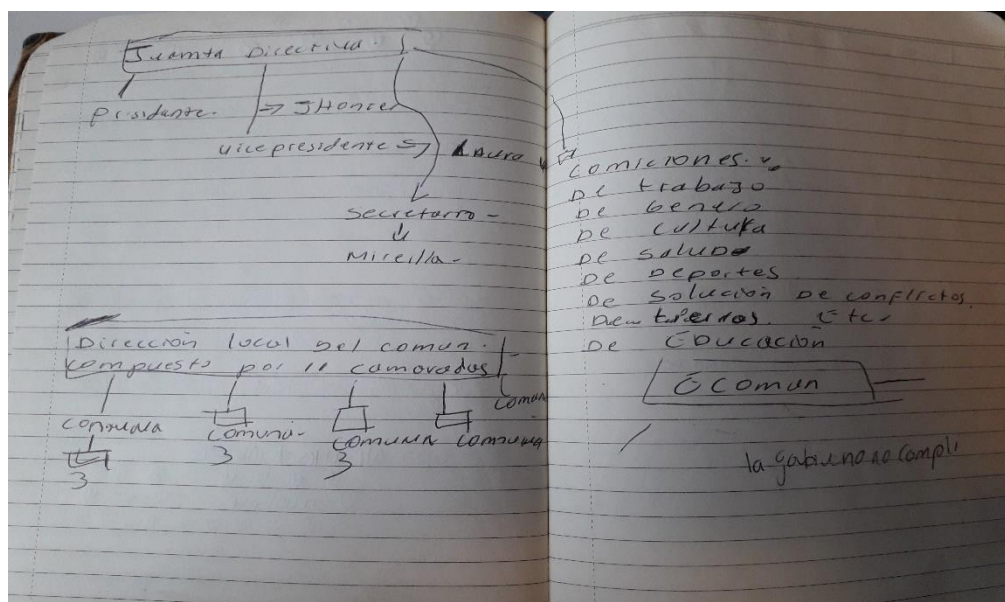 Juamta Directiva.
Presidante. → JHonce
vicepresidente → Laura
Secretarro -
Mireilla -
Dirección local del comun.
compuesto por 10 camaradas
comuna comuna- comuna comuna comun
3 3 3
comiciones.
De trabajo
De Genero
De cultura
De saluD
De Deportes
De Solución De conflictos.
Etc.
De EDucación
Ecomun
la gobierno no compli